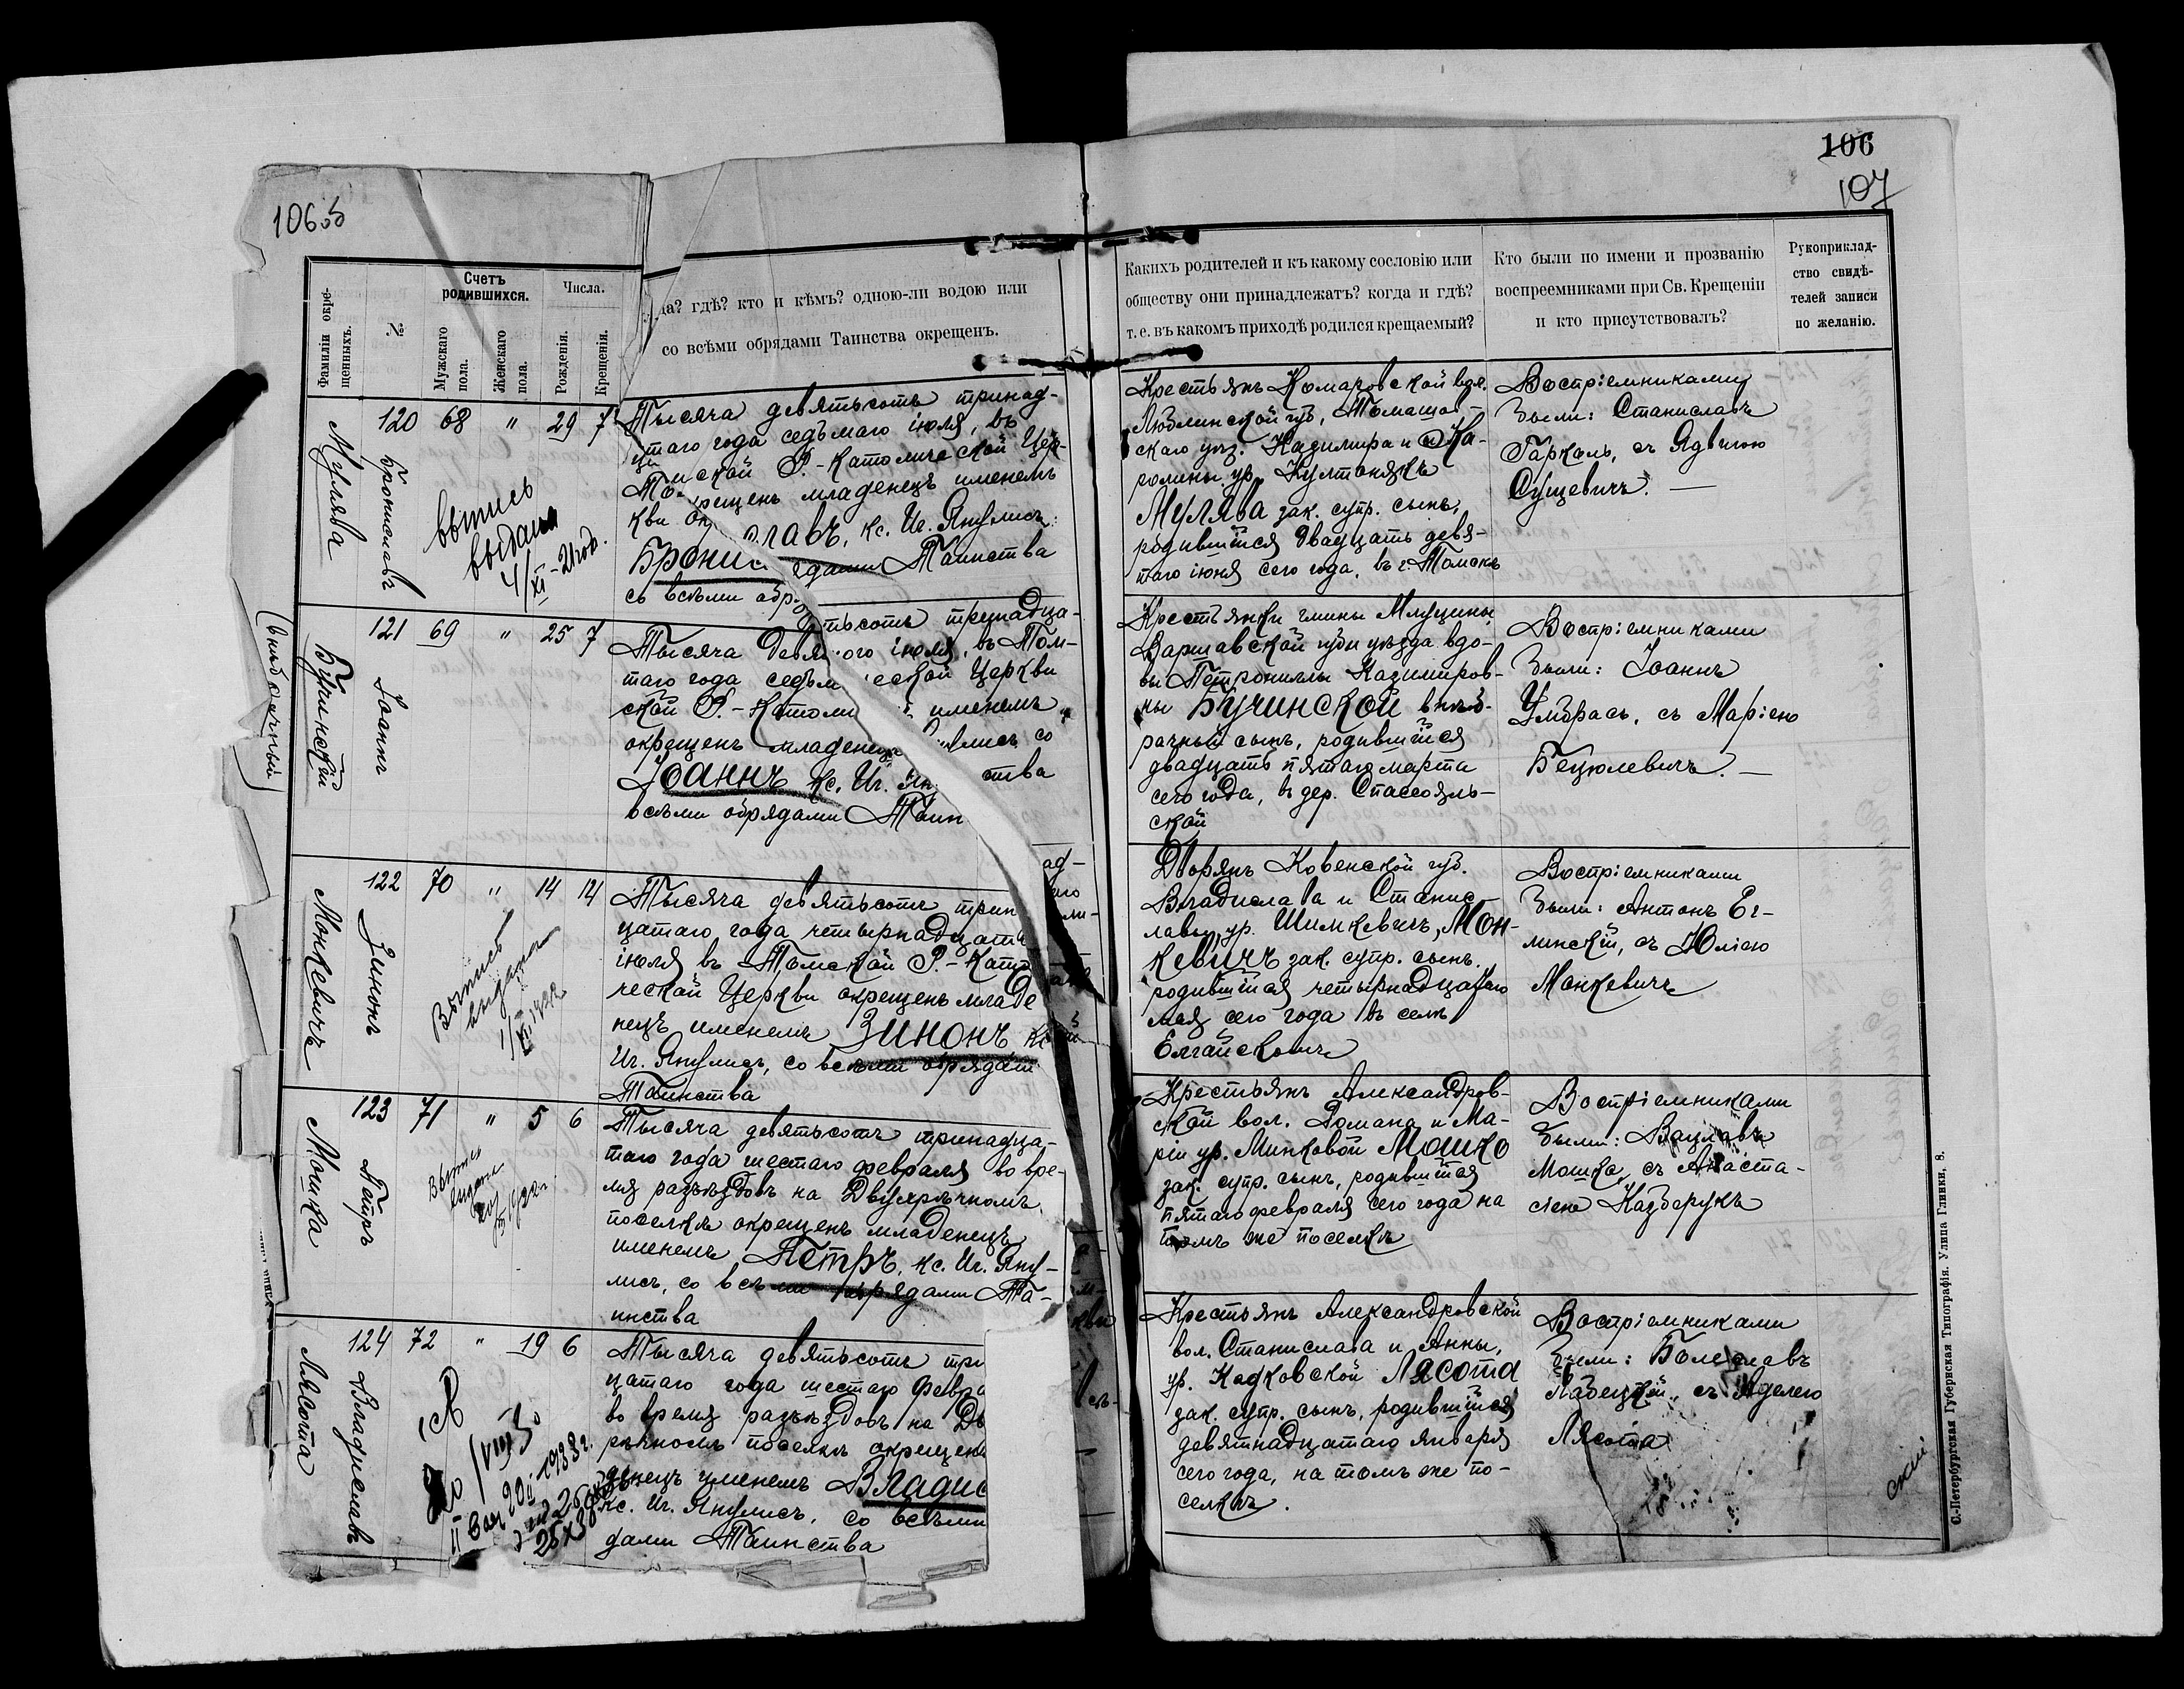 106об
106
107
Фамиліи окре-
щенныхъ.
№
Счетъ
родившихся.
Мужскаго
пола.
Женскаго
пола.
Числа.
Рожденія.
Крещенія.
да? гдѣ? кто и кѣмъ? одною-ли водою или
со всѣми обрядами Таинства окрещенъ.
Какихъ родителей и къ какому сословію или
обществу они принадлежатъ? когда и гдѣ?
т. е. въ какомъ приходѣ родился крещаемый?
Кто были по имени и прозванію
воспреемниками при Св. Крещеніи
и кто присутствовалъ?
Рукоприклад-
ство свидѣ-
телей записи
по желанію.
Мулява
120 68 " 29 7
Брониславъ
выпись
выдана
4/XI-21 год.
Тысяча девятьсотъ тринад-
цтаго года седьмаго іюля, въ
То ской Р.-Католической Цер-
кви ок рещенъ младенецъ именемъ
Брони славъ, кс. Иг. Янулисъ
съ всѣми обр ядами Таинства
Крестьянъ Комаровской вол.
Люблинской губ., Томашов-
скаго уѣз. Казимира и Ка-
ролины ур. Култонякъ
Мулява зак. супр. сынъ,
родившійся двадцать девя-
таго іюня сего года, въ г. Томскѣ
Воспріемниками
были: Станиславъ
Гарколь, съ Ядвигою
Сущевичъ. —
(внѣбрачный)
Бучинскій
121 69 " 25 7
Іоаннъ
Тысяча девя тьсотъ тринадца-
таго года седьм ого іюля, въ Том-
ской Р.-Католи ческой Церкви
окрещенъ младенецъ именемъ
Іоаннъ кс. Иг. Ян улисъ, со
всѣми обрядами Таин ства
Крестьянки гмины Млуцины,
Варшавской губ и уѣзда вдо-
вы Петрониллы Казимиров-
ны Бучинской внѣб-
рачный сынъ, родившійся
двадцать пятаго марта
сего года, въ дер. Спассояль-
ской
Воспріемниками
были: Іоаннъ
Умбрасъ, съ Маріею
Бецюлевичъ. —
Монкевичъ
122 70 " 14 14
Зинонъ
Выпись
выдана
1/XII 1922
Тысяча девятьсотъ трин ад-
цатаго года четырнадцат аго
іюля въ Томской Р.-Като ли-
ческой Церкви окрещенъ младе
нецъ именемъ Зинонъ кс.
Иг. Янулисъ, со всѣми обрядами
Таинства
Дворянъ Ковенской губ.
Владислава и Станис-
лавы, ур. Шимкевичъ, Мон-
кевичъ зак. супр. сынъ,
родившійся четырнадцатаго
мая сего года въ селѣ
Елгайскомъ
Воспріемниками
были: Антонъ Ег-
линскій, съ Юліею
Монкевичъ
Мошка
123 71 " 5 6
Петръ
Выпись
выдана
1922 г.
Тысяча девятьсотъ тринадца-
таго года шестаго февраля во вре-
мя разъѣздовъ на Двухрѣчномъ
поселкѣ окрещенъ младенецъ
именемъ Петръ, кс. Иг. Яну-
лисъ, со всѣми обрядами Та-
инства
Крестьянъ Александров-
ской вол. Романа и Ма-
ріи ур. Минковой Мошко
зак. супр. сынъ, родившійся
пятаго февраля сего года на
томъ же поселкѣ
Воспріемниками
были: Вацлавъ
Мошка, съ Анаста-
сіею Казберукъ
Лясота
124 72 " 19 6
Владиславъ
20 1933 г.
25 X 38
Тысяча девятьсотъ три
цатаго года шестаго февра
во время разъѣздовъ на Дв
рѣчномъ поселкѣ окрещенъ
денецъ именемъ Владис
кс. Иг. Янулисъ, со всѣми
дами Таинства
Крестьянъ Александровской
вол. Станислава и Анны,
ур. Кадковской Лясота
зак. супр. сынъ, родившійся
девятнадцатаго января
сего года, на томъ же по-
селкѣ.
Воспріемниками
были: Болеславъ
Лабецкій, съ Аделею
Лясота
ской
С.-Петербургская Губернская Типографія. Улица Глинки, 8.